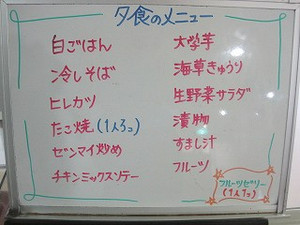 夕食のメニュー
白ごはん
冷しそば
ヒレカツ
たこ焼(1人3コ)
ゼンマイ炒め
チキンミックスソテー
大学芋
海草きゅうり
生野菜サラダ
漬物
すまし汁
フルーツ
フルーツゼリー
(1人1コ)